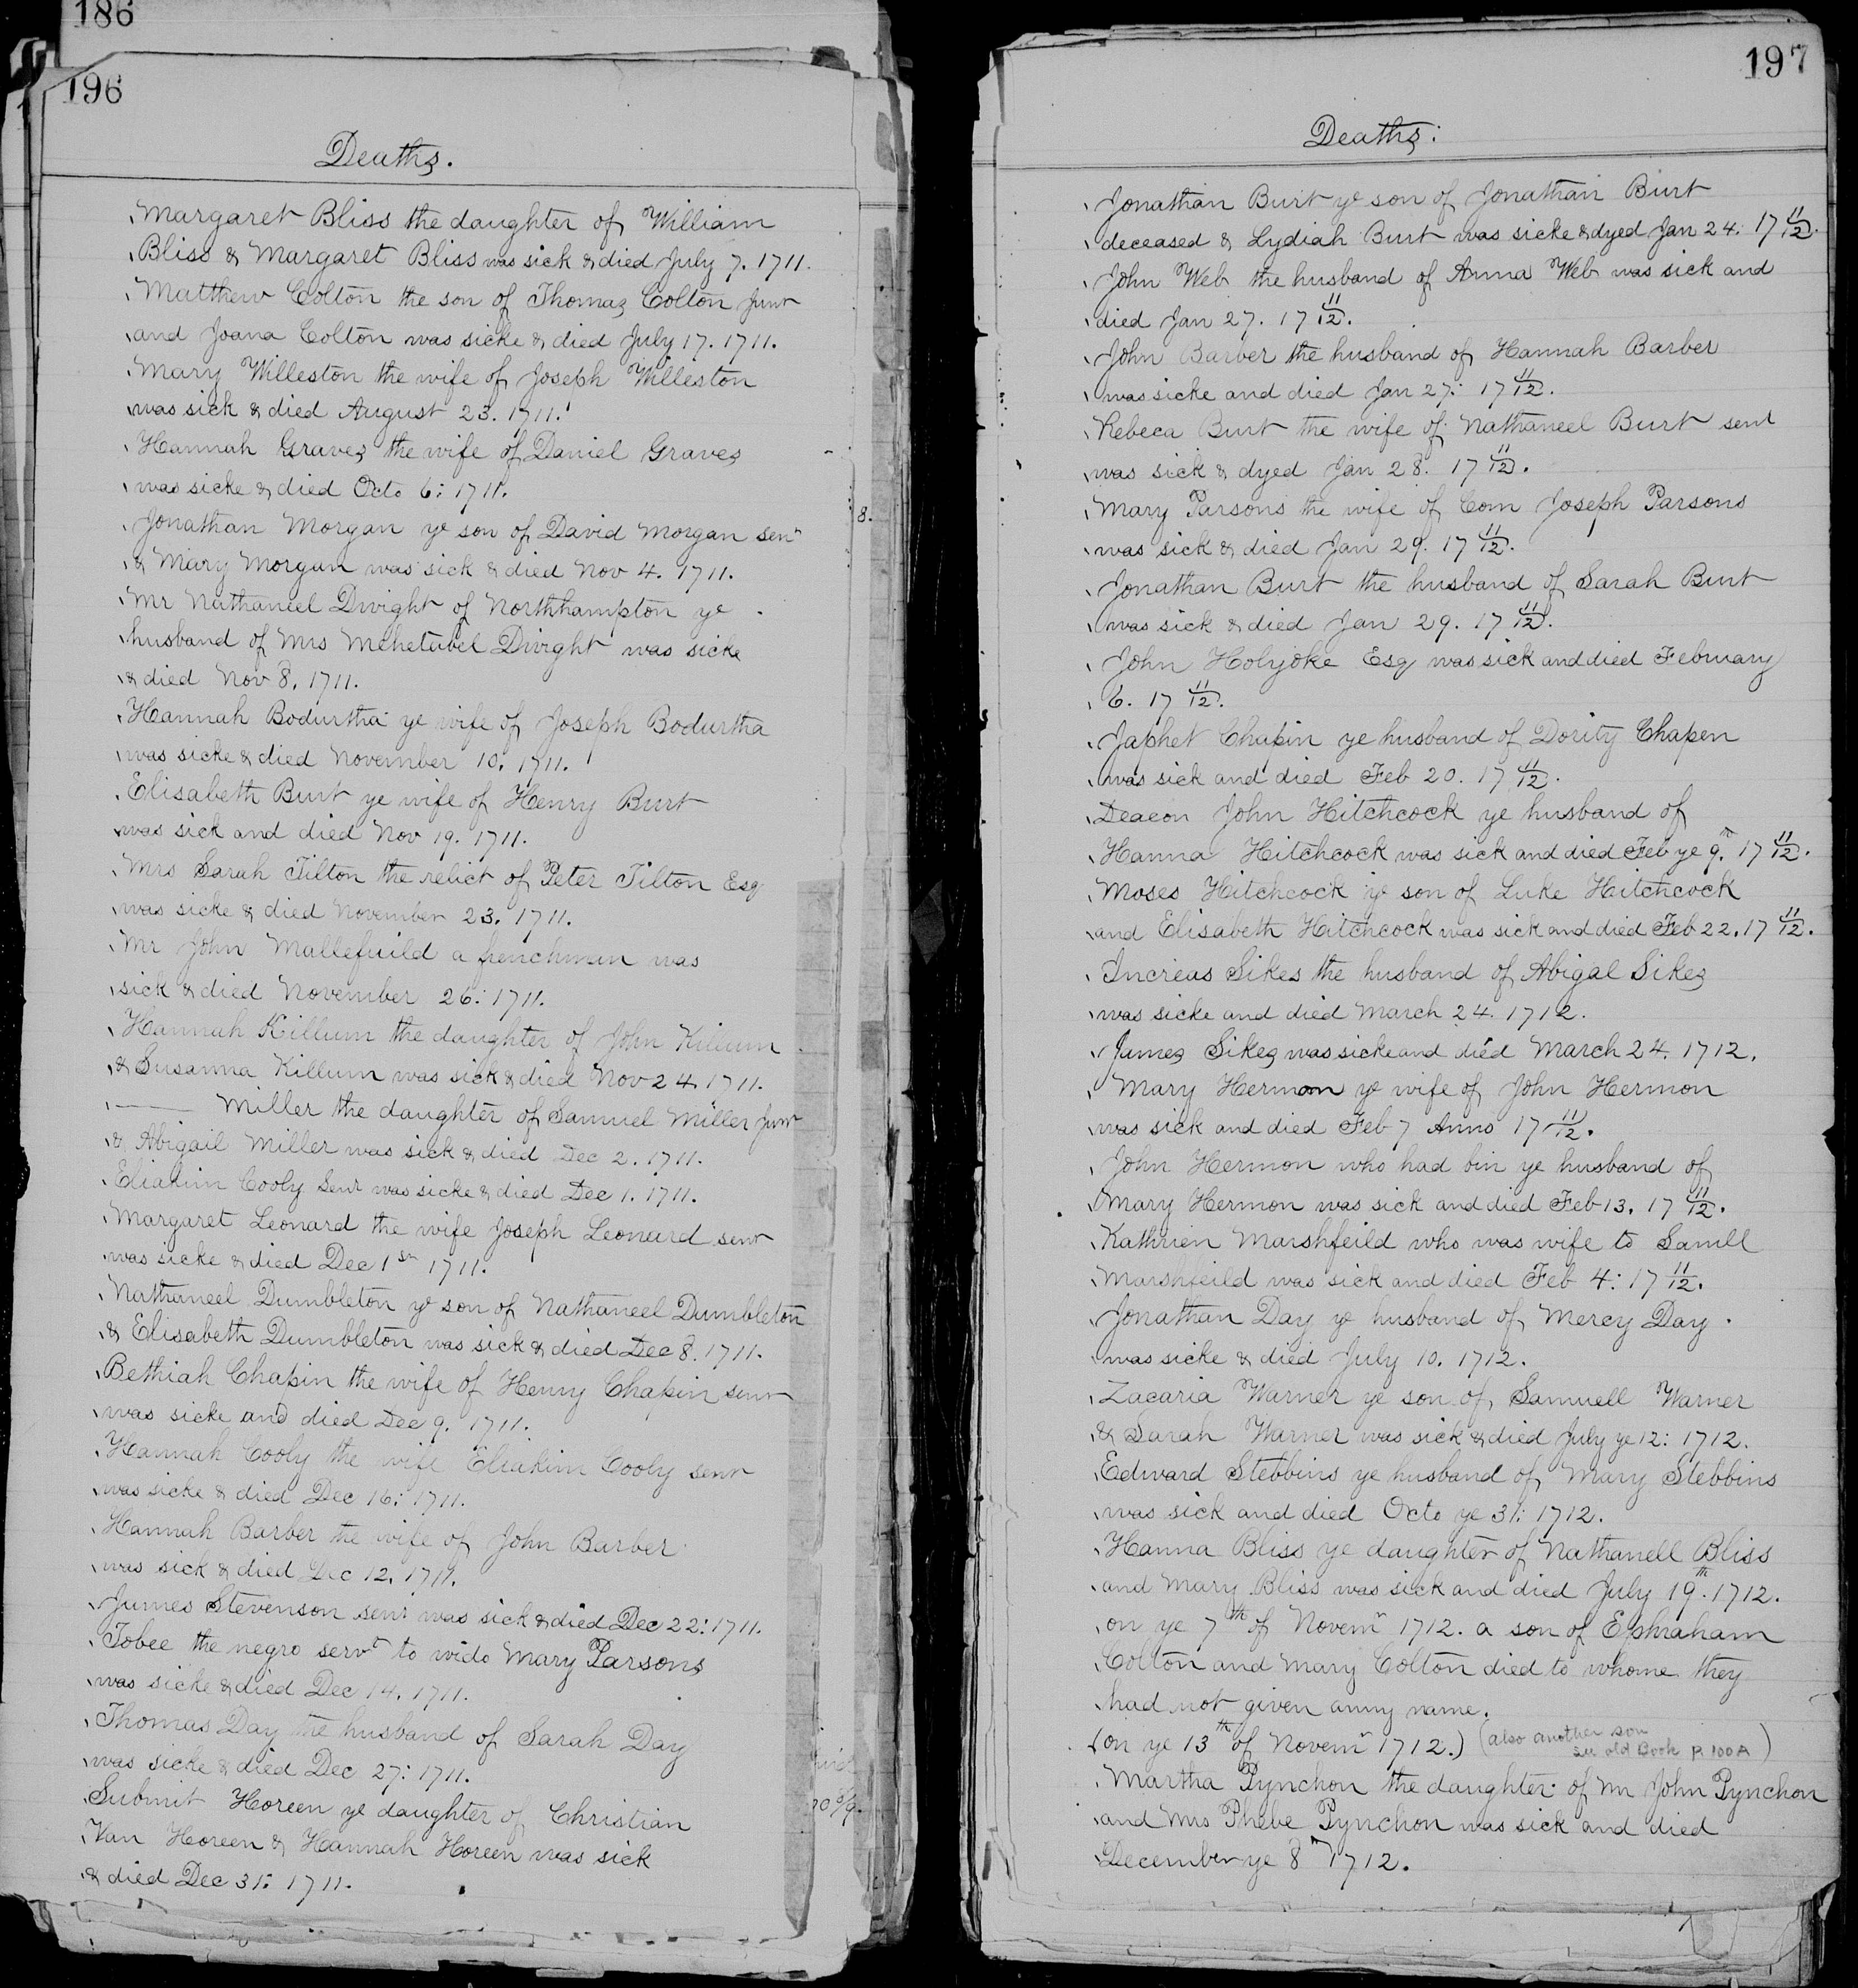 186
196
Deaths.
Margaret Bliss the daughter of William
Bliss & Margaret Bliss was sick & died July 7. 1711.
Matthew Colton the son of Thomas Colton Junr
and Joana Colton was sicke & died July 17. 1711.
Mary Willeston the wife of Joseph Willeston
was sick & died August 23. 1711.
Hannah Graves the wife of Daniel Graves
was sicke & died Octo 6: 1711.
Jonathan Morgan ye son of David Morgan senr
& Mary Morgan was sick & died Nov 4. 1711.
Mr Nathaneel Dwight of Northhampton ye
husband of Mrs Mehetabel Dwight was sicke
& died Nov 8, 1711.
Hannah Bodurtha ye wife of Joseph Bodurtha
was sicke & died November 10: 1711.
Elisabeth Burt ye wife of Henry Burt
was sick and died Nov 19. 1711.
Mrs Sarah Tilton the relict of Peter Tilton Esq
was sicke & died November 23. 1711.
Mr John Mallefuild a frenchman was
sick & died November 26: 1711.
Hannah Killum the daughter of John Killum
& Susanna Killum was sick & died Nov 24. 1711.
—— Miller the daughter of Samuel Miller Junr
& Abigail Miller was sick & died Dec 2. 1711.
Eliakim Cooly Senr was sicke & died Dec 1. 1711.
Margaret Leonard the wife Joseph Leonard senr
was sicke & died Dec 1st 1711.
Nathaneel Dumbleton ye son of Nathaneel Dumbleton
& Elisabeth Dumbleton was sick & died Dec 8. 1711.
Bethiah Chapin the wife of Henry Chapin senr
was sicke and died Dec 9. 1711.
Hannah Cooly the wife Eliakim Cooly senr
was sicke & died Dec 16: 1711.
Hannah Barber the wife of John Barber
was sick & died Dec 12. 1711.
James Stevenson senr was sick & died Dec 22: 1711.
Tobee the negro servt to wido Mary Parsons
was sicke & died Dec 14. 1711.
Thomas Day the husband of Sarah Day
was sicke & died Dec 27: 1711.
Submit Horeen ye daughter of Christian
Van Horeen & Hannah Horeen was sick
& died Dec 31: 1711.
8.
197
Deaths:
Jonathan Burt ye son of Jonathan Burt
deceased & Lydiah Burt was sicke & dyed Jan 24. 17 11/12.
John Web the husband of Anna Web was sick and
died Jan 27. 17 11/12.
John Barber the husband of Hannah Barber
was sicke and died Jan 27: 17 11/12.
Rebeca Burt the wife of Nathaneel Burt senr
was sick & dyed Jan 28. 17 11/12.
Mary Parsons the wife of Corn Joseph Parsons
was sick & died Jan 29. 17 11/12.
Jonathan Burt the husband of Sarah Burt
was sick & died Jan 29. 17 11/12.
John Holyoke Esq was sick and died February
6. 17 11/12.
Japhet Chapin ye husband of Dority Chapen
was sick and died Feb 20. 17 11/12.
Deacon John Hitchcock ye husband of
Hanna Hitchcock was sick and died Feb ye 9th. 17 11/12.
Moses Hitchcock ye son of Luke Hitchcock
and Elisabeth Hitchcock was sick and died Feb 22. 17 11/12.
Increas Sikes the husband of Abigal Sikes
was sicke and died March 24. 1712.
James Sikes was sicke and died March 24. 1712.
Mary Hermon ye wife of John Hermon
was sick and died Feb 7 Anno 17 11/12.
John Hermon who had bin ye husband of
Mary Hermon was sick and died Feb 13. 17 11/12.
Kathrien Marshfeild who was wife to Samll
Marshfeild was sick and died Feb 4: 17 11/12.
Jonathan Day ye husband of Mercy Day.
was sicke & died July 10. 1712.
Zacaria Warner ye son of Samuell Warner
& Sarah Warner was sick & died July ye 12: 1712.
Edward Stebbins ye husband of Mary Stebbins
was sick and died Octo ye 31: 1712.
Hanna Bliss ye daughter of Nathanell Bliss
and Mary Bliss was sick and died July 19th. 1712.
on ye 7th of Novemr 1712. a son of Ephraham
Colton and Mary Colton died to whome they
had not given anny name.
(on ye 13th of Novemr 1712.) (also another son
see old Book P. 100A)
Martha Pynchon the daughter of Mr John Pynchon
and Mrs Phebe Pynchon was sick and died
December ye 8th 1712.